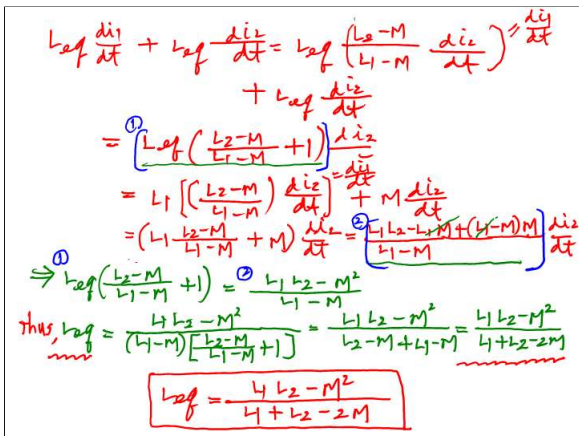 Leq di1/dt + Leq di2/dt = Leq (L2-M/L1-M di2/dt) = di1/dt
+ Leq di2/dt
= ① [Leq (L2-M/L1-M + 1)] di2/dt
= L1 [(L2-M/L1-M) di2/dt] = di1/dt + M di2/dt
= (L1 L2-M/L1-M + M) di2/dt = ② [L1L2-L1M+(L1-M)M/L1-M] di2/dt
⇒ ① Leq (L2-M/L1-M + 1) = ② L1L2-M²/L1-M
Thus, Leq = L1L2-M²/(L1-M)[L2-M/L1-M + 1] = L1L2-M²/L2-M+L1-M = L1L2-M²/L1+L2-2M
Leq = L1L2-M²/L1+L2-2M